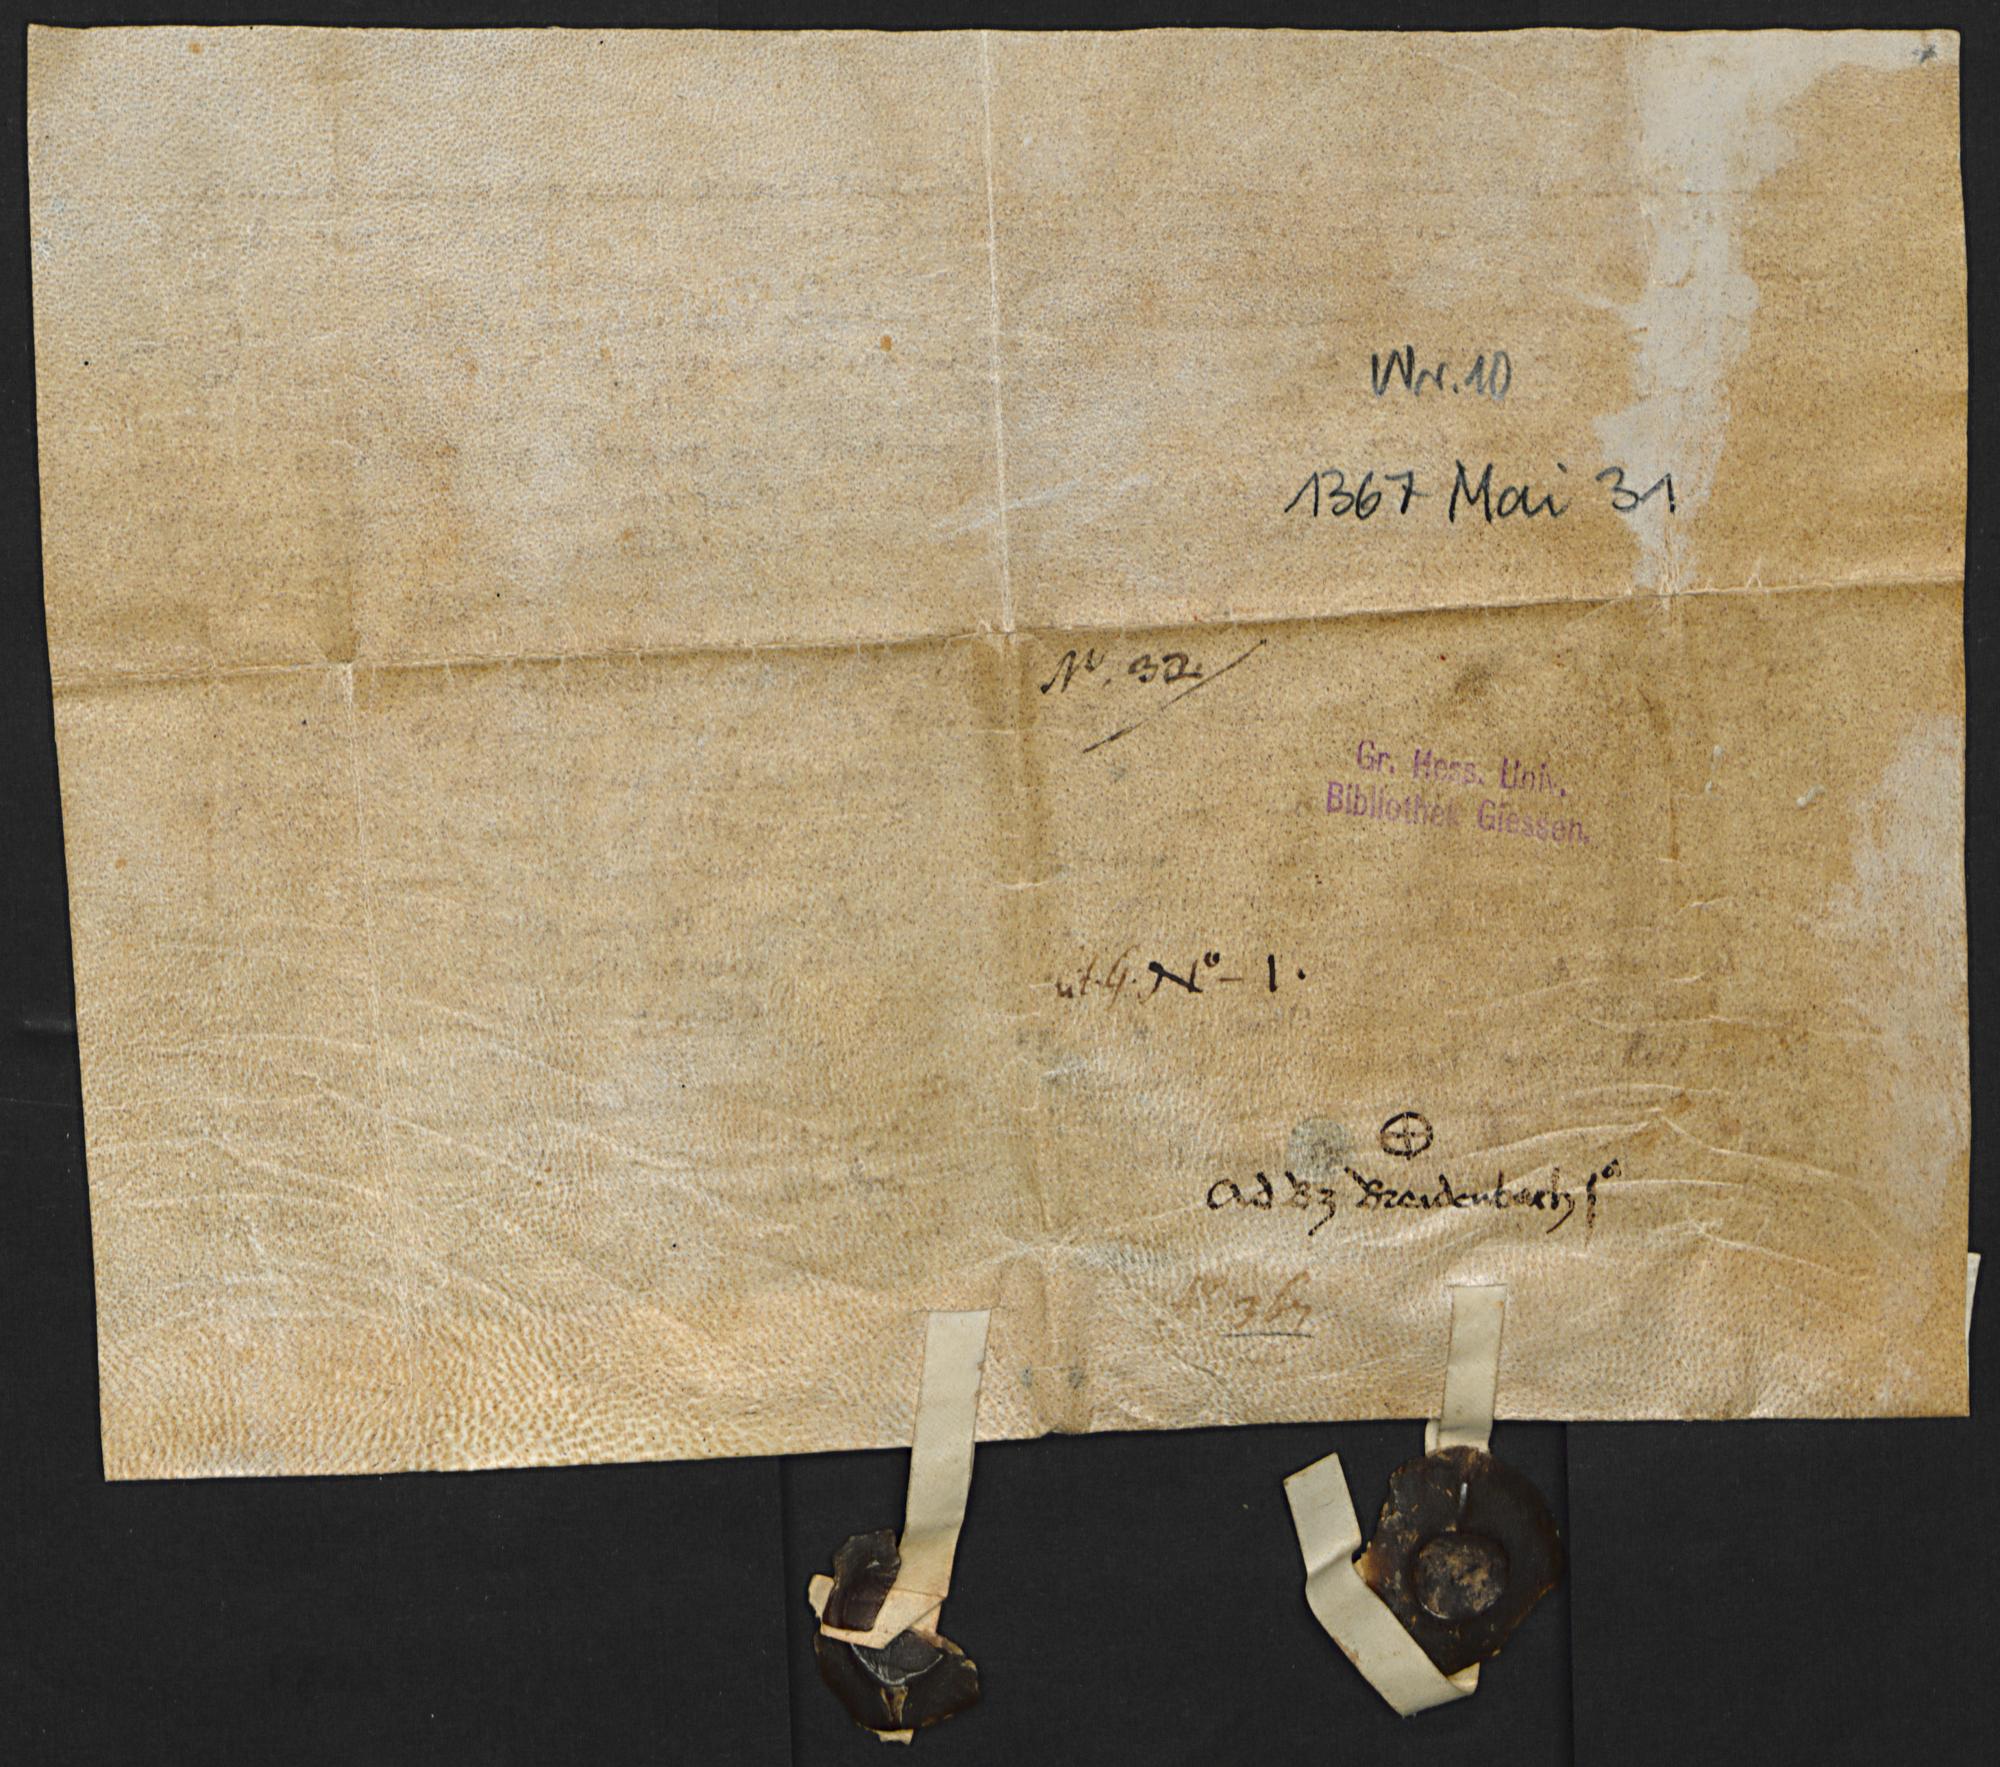 Nr. 10
1367 Mai 31
N. 32.
Gr. Hess. Univ.
Bibliothek Giessen.
Lit. G. N° - 1.
ad Bz Breidenbach
N° 367